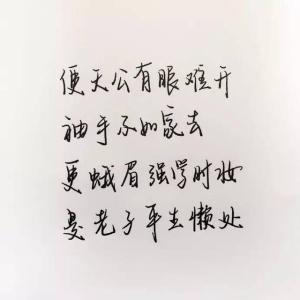 便天公有眼难开
袖手不如家去
更蛾眉强学时妆
是老子平生懒处